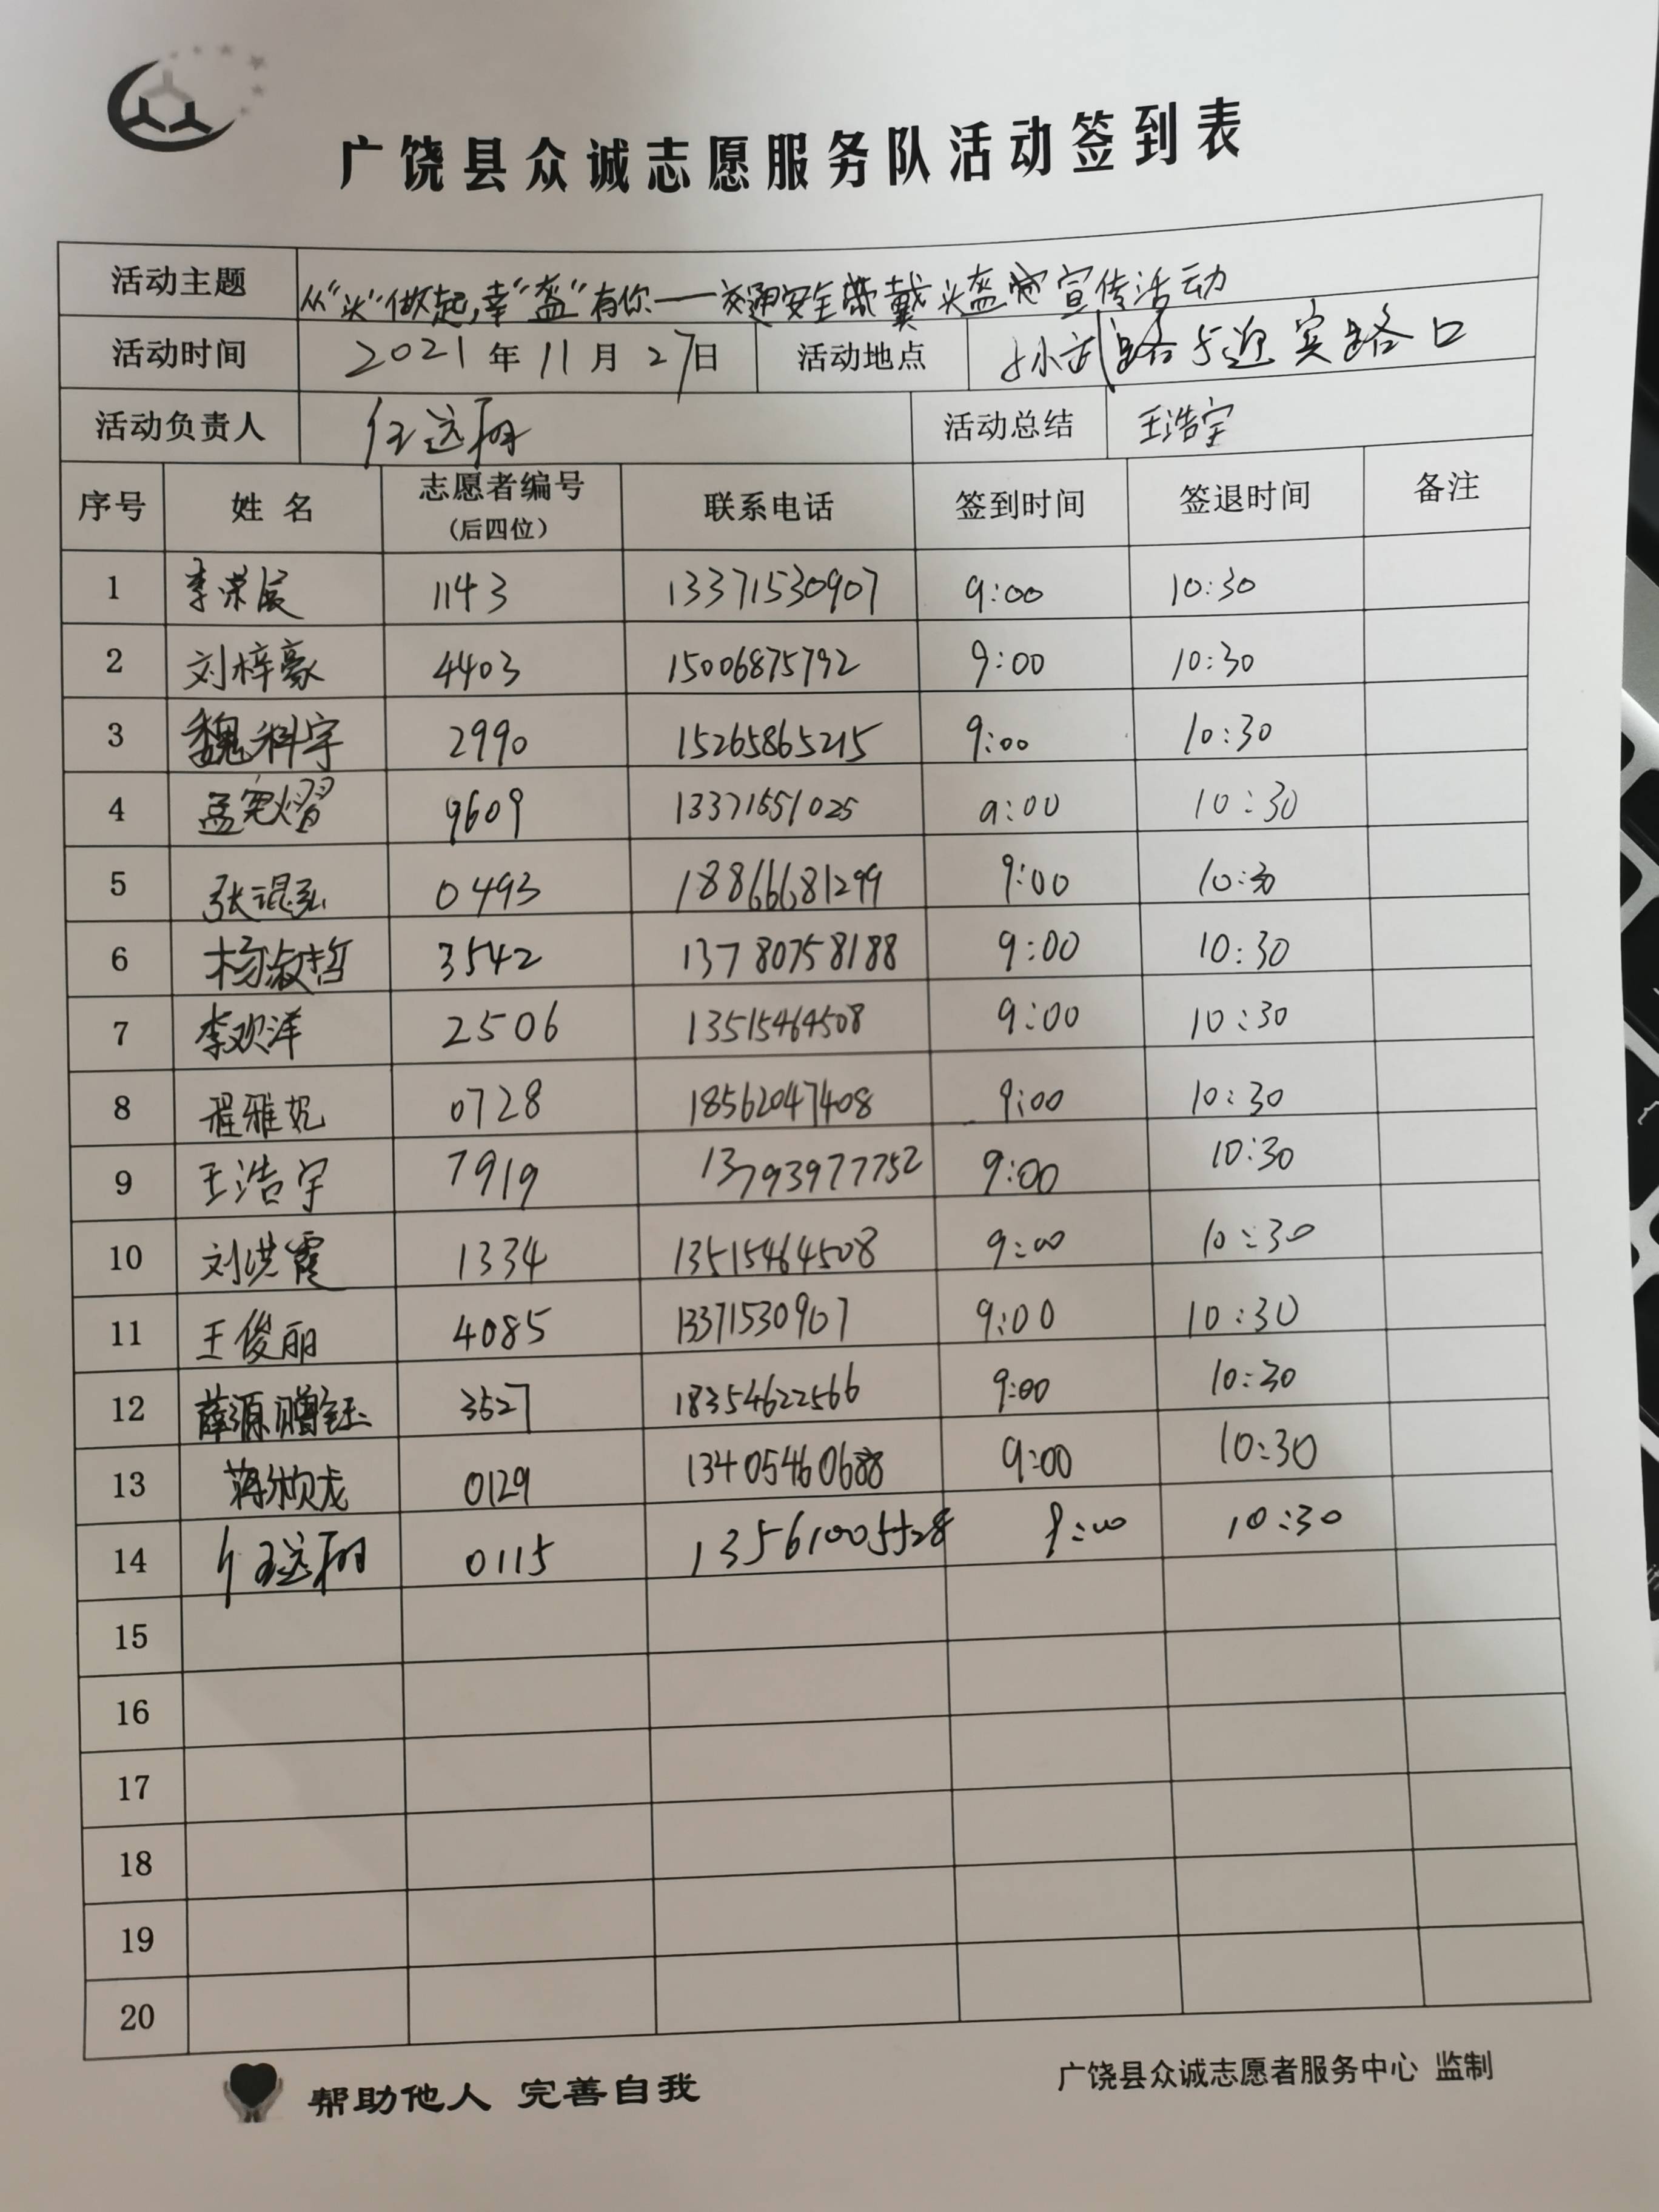 广饶县众诚志愿服务队活动签到表
活动主题 从“头”做起,幸“盔”有你——交通安全带戴头盔 宣传活动
活动时间 2021年11月27日 活动地点 孙武路与迎宾路口
活动负责人 任远翔 活动总结 王浩宇
序号 姓名 志愿者编号(后四位) 联系电话 签到时间 签退时间 备注
1 李荣展 1143 13371530907 9:00 10:30
2 刘梓豪 4403 15006875792 9:00 10:30
3 魏科宇 2990 15265865215 9:00 10:30
4 孟宪熠 9609 13371551025 9:00 10:30
5 张琨弘 0493 18866681299 9:00 10:30
6 杨淑哲 3542 13780758188 9:00 10:30
7 李欢洋 2506 13515464508 9:00 10:30
8 程雅妃 0728 18562047408 9:00 10:30
9 王浩宇 7919 13793977752 9:00 10:30
10 刘洪霞 1334 13515464508 9:00 10:30
11 王俊丽 4085 13371530907 9:00 10:30
12 薛源 3527 18354622566 9:00 10:30
13 0129 13405460688 9:00 10:30
14 任远翔 0115 13561005528 9:00 10:30
15
16
17
18
19
20
帮助他人 完善自我 广饶县众诚志愿者服务中心 监制